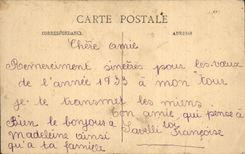 CARTE POSTALE
CORRESPONDANCE
ADRESSE
Chère amie
Remerciment sincères pour les vœux
de l'année 1933 à mon tour
je te transmet les miens
ton amie qui pense à toi
Bien le bonjour à Françoise
Madeleine ainsi
qu'a ta famille